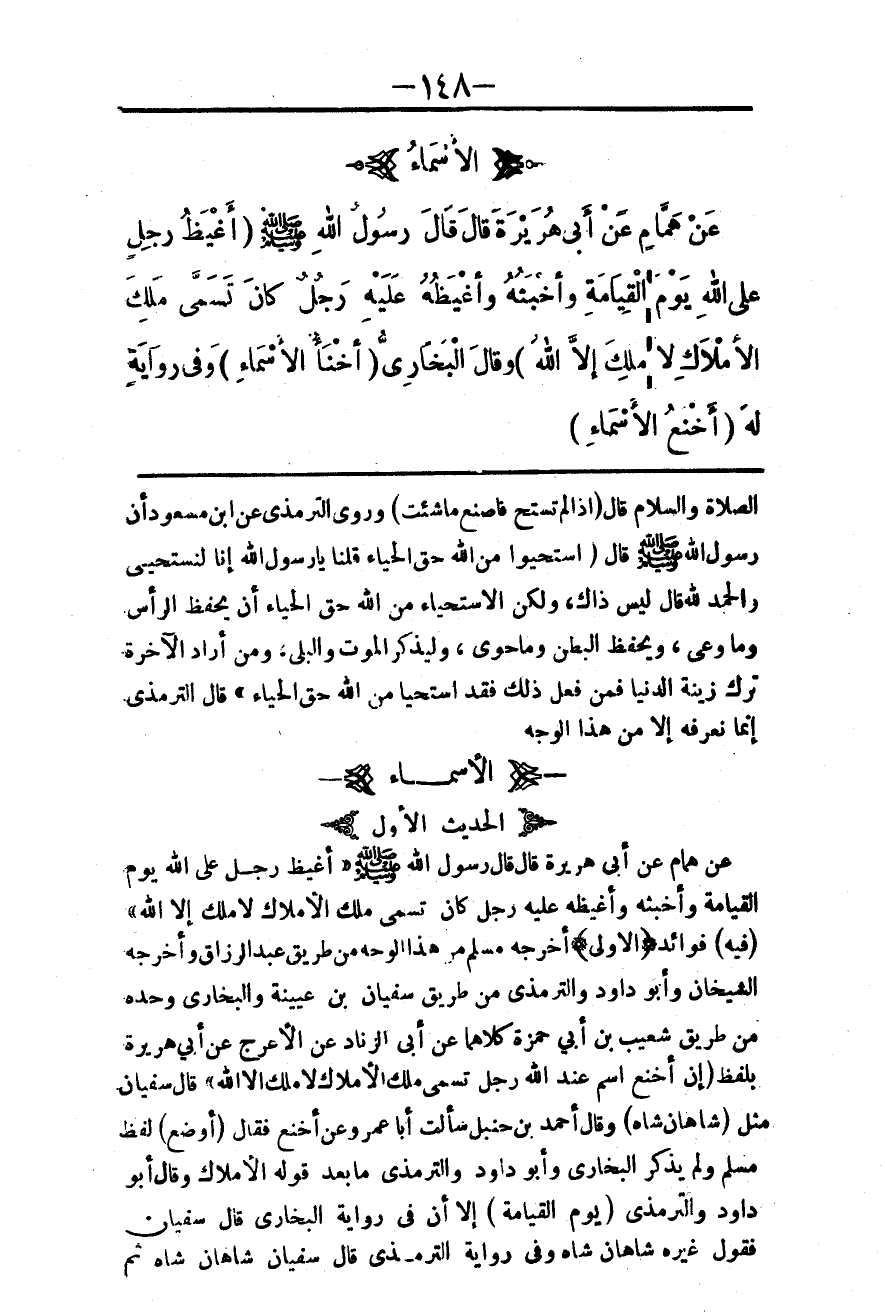 -١٤٨-
الأَسْمَاءُ
عَنْ هَمَّامٍ عَنْ أَبِى هُرَيْرَةَ قالَ قَالَ رسُولُ اللهِ ﷺ (أَغْيَظُ رجلٍ
على اللهِ يَوْمَ الْقِيَامَةِ وأخْبَثُهُ وأغْيَظُهُ عَلَيْهِ رَجُلٌ كانَ تَسَمَّى مَلِكَ
الأمْلاَكِ لا ملِكَ إلاَّ اللهُ) وقالَ الْبُخَارِىُّ (أخْنَأُ الأسْمَاءِ) وَفى روايَةٍ
لهَ (أَخْنَعُ الأَسْمَاءِ)
الصلاة والسلام قال (اذا لم تستح فاصنع ماشئت) وروى الترمذى عن ابن مسعود أن
رسول الله ﷺ قال (استحيوا من الله حق الحياء قلنا يارسول الله إنا لنستحيى
والحمد لله قال ليس ذاك، ولكن الاستحياء من الله حق الحياء أن يحفظ الرأس
وما وعى، ويحفظ البطن وماحوى، وليذكر الموت والبلى، ومن أراد الآخرة
ترك زينة الدنيا فمن فعل ذلك فقد استحيا من الله حق الحياء» قال الترمذى
إنما نعرفه إلا من هذا الوجه
الأسمــاء
الحديث الأول
عن همام عن أبى هريرة قال قال رسول الله ﷺ «أغيظ رجل على الله يوم
القيامة وأخبثه وأغيظه عليه رجل كان تسمى ملك الأملاك لاملك إلا الله»
(فيه) فوائد ﴿الاولى﴾ أخرجه مسلم من هذا الوجه من طريق عبد الرزاق وأخرجه
الشيخان وأبو داود والترمذى من طريق سفيان بن عيينة والبخارى وحده
من طريق شعيب بن أبي حمزة كلاهما عن أبى الزناد عن الأعرج عن أبي هريرة
بلفظ (إن أخنع اسم عند الله رجل تسمى ملك الأملاك لا ملك الا الله» قال سفيان
مثل (شاهان شاه) وقال أحمد بن حنبل سألت أبا عمرو عن أخنع فقال (أوضع) لفظ
مسلم ولم يذكر البخارى وأبو داود والترمذى مابعد قوله الأملاك وقال أبو
داود والترمذى (يوم القيامة) إلا أن فى رواية البخارى قال سفيان
فقول غيره شاهان شاه وفى رواية الترمذى قال سفيان شاهان شاه ثم